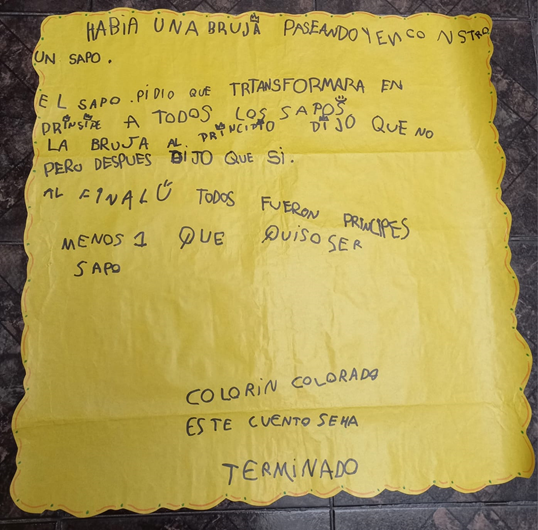 HABIA UNA BRUJA PASEANDO Y ENCONSTRO
UN SAPO.
EL SAPO. PIDIO QUE TRTANSFORMARA EN
PRINSIPE A TODOS LOS SAPOS
LA BRUJA AL PRINCIPIO DIJO QUE NO
PERO DESPUES DIJO QUE SI.
AL FINAL TODOS FUERON PRINCIPES
MENOS 1 QUE QUISO SER
SAPO
COLORIN COLORADO
ESTE CUENTO SE HA
TERMINADO